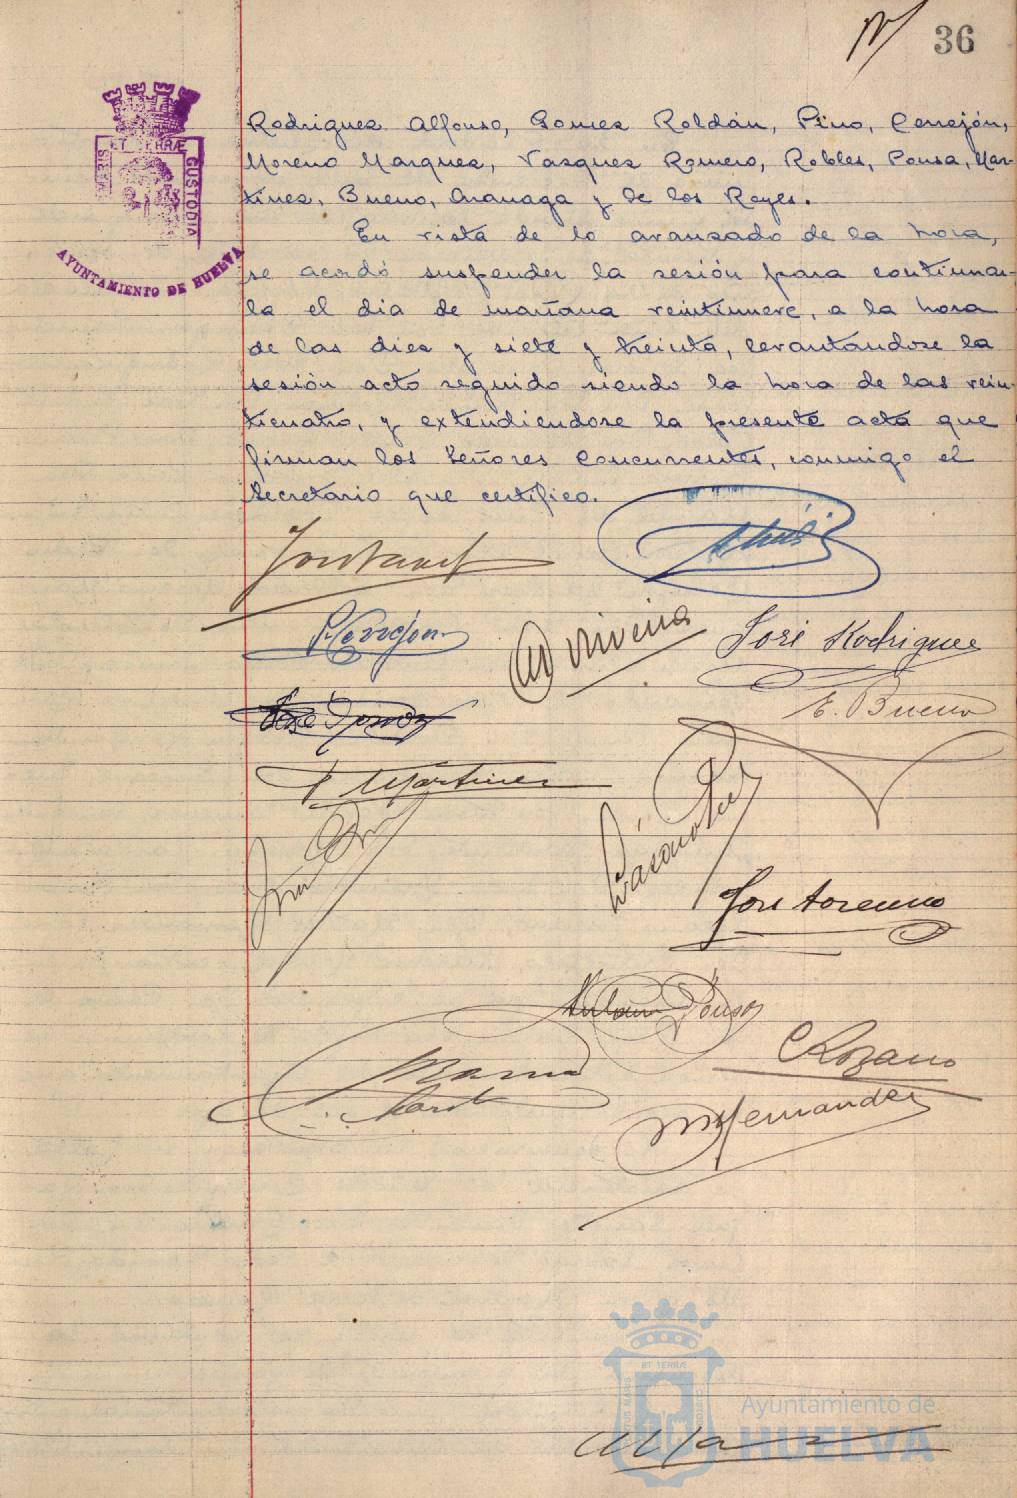 36
Rodriguez Alfonso, Gomez Roldán, Pino, Cerrejón,
Moreno Marquez, Vazquez Romero, Robles, Ponsa, Mar-
tinez, Bueno, Aranaga y de los Reyes.
En vista de lo avanzado de la hora,
se acordó suspender la sesión para continuar-
la el dia de mañana veintinueve, a la hora
de las diez y siete y treinta, levantándose la
sesión acto seguido siendo la hora de las vein-
ticuatro, y extendiendose la presente acta que
firman los Señores Concurrentes, conmigo el
Secretario que certifico.
ET TERRÆ
MARIS
CUSTODIA
AYUNTAMIENTO DE HUELVA
P. Cerrejon
José Rodriguez
E. Bueno
Martinez
José Moreno
Antonio Ponsa
Lozano
M Hernandez
ET TERRÆ
Ayuntamiento de
HUELVA